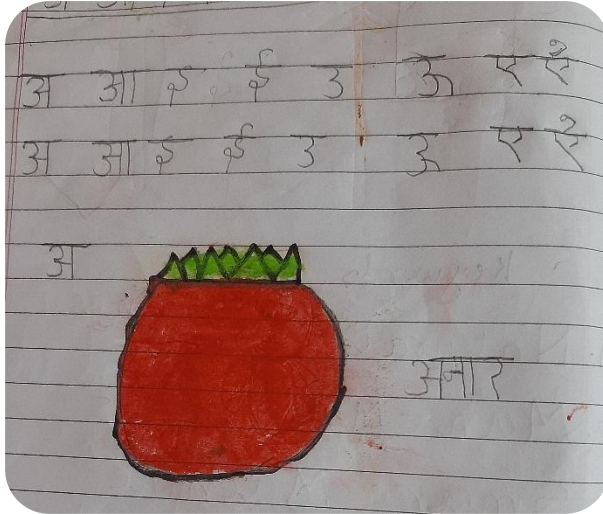 अ आ इ ई उ ऊ ए ऐ
अ आ इ ई उ ऊ ए ऐ
अ
अनार